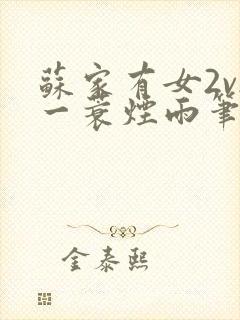 蘇家有女2v
一蓑煙雨筆
金泰熙